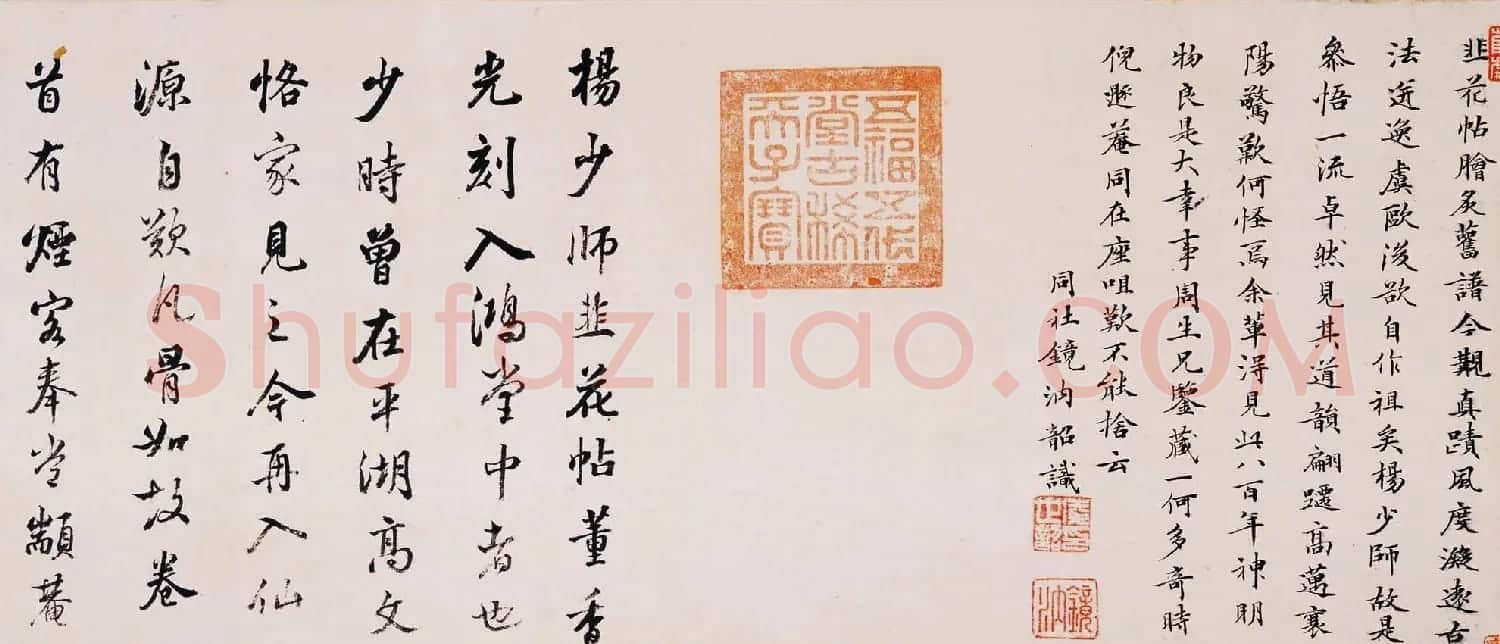 韭花帖膾炙舊譜今觀真蹟風度凝遠古
法迸逸虞歐後欲自作祖矣楊少師故是
參悟一流卓然見其道韻翩躚高蓮裏
陽驚歎何怪焉余輩得見此八百年神明
物良是大幸事周生兄鑒藏一何多奇時
倪遯菴同在座咀歎不能捨云
同社鏡汭韶識
五福五代
堂古稀
天子寶
楊少師韭花帖董香
光刻入鴻堂中者也
少時曾在平湖高文
恪家見之今再入仙
源自歎凡骨如故卷
首有煙客奉常顓菴
Shufaziliao.COM